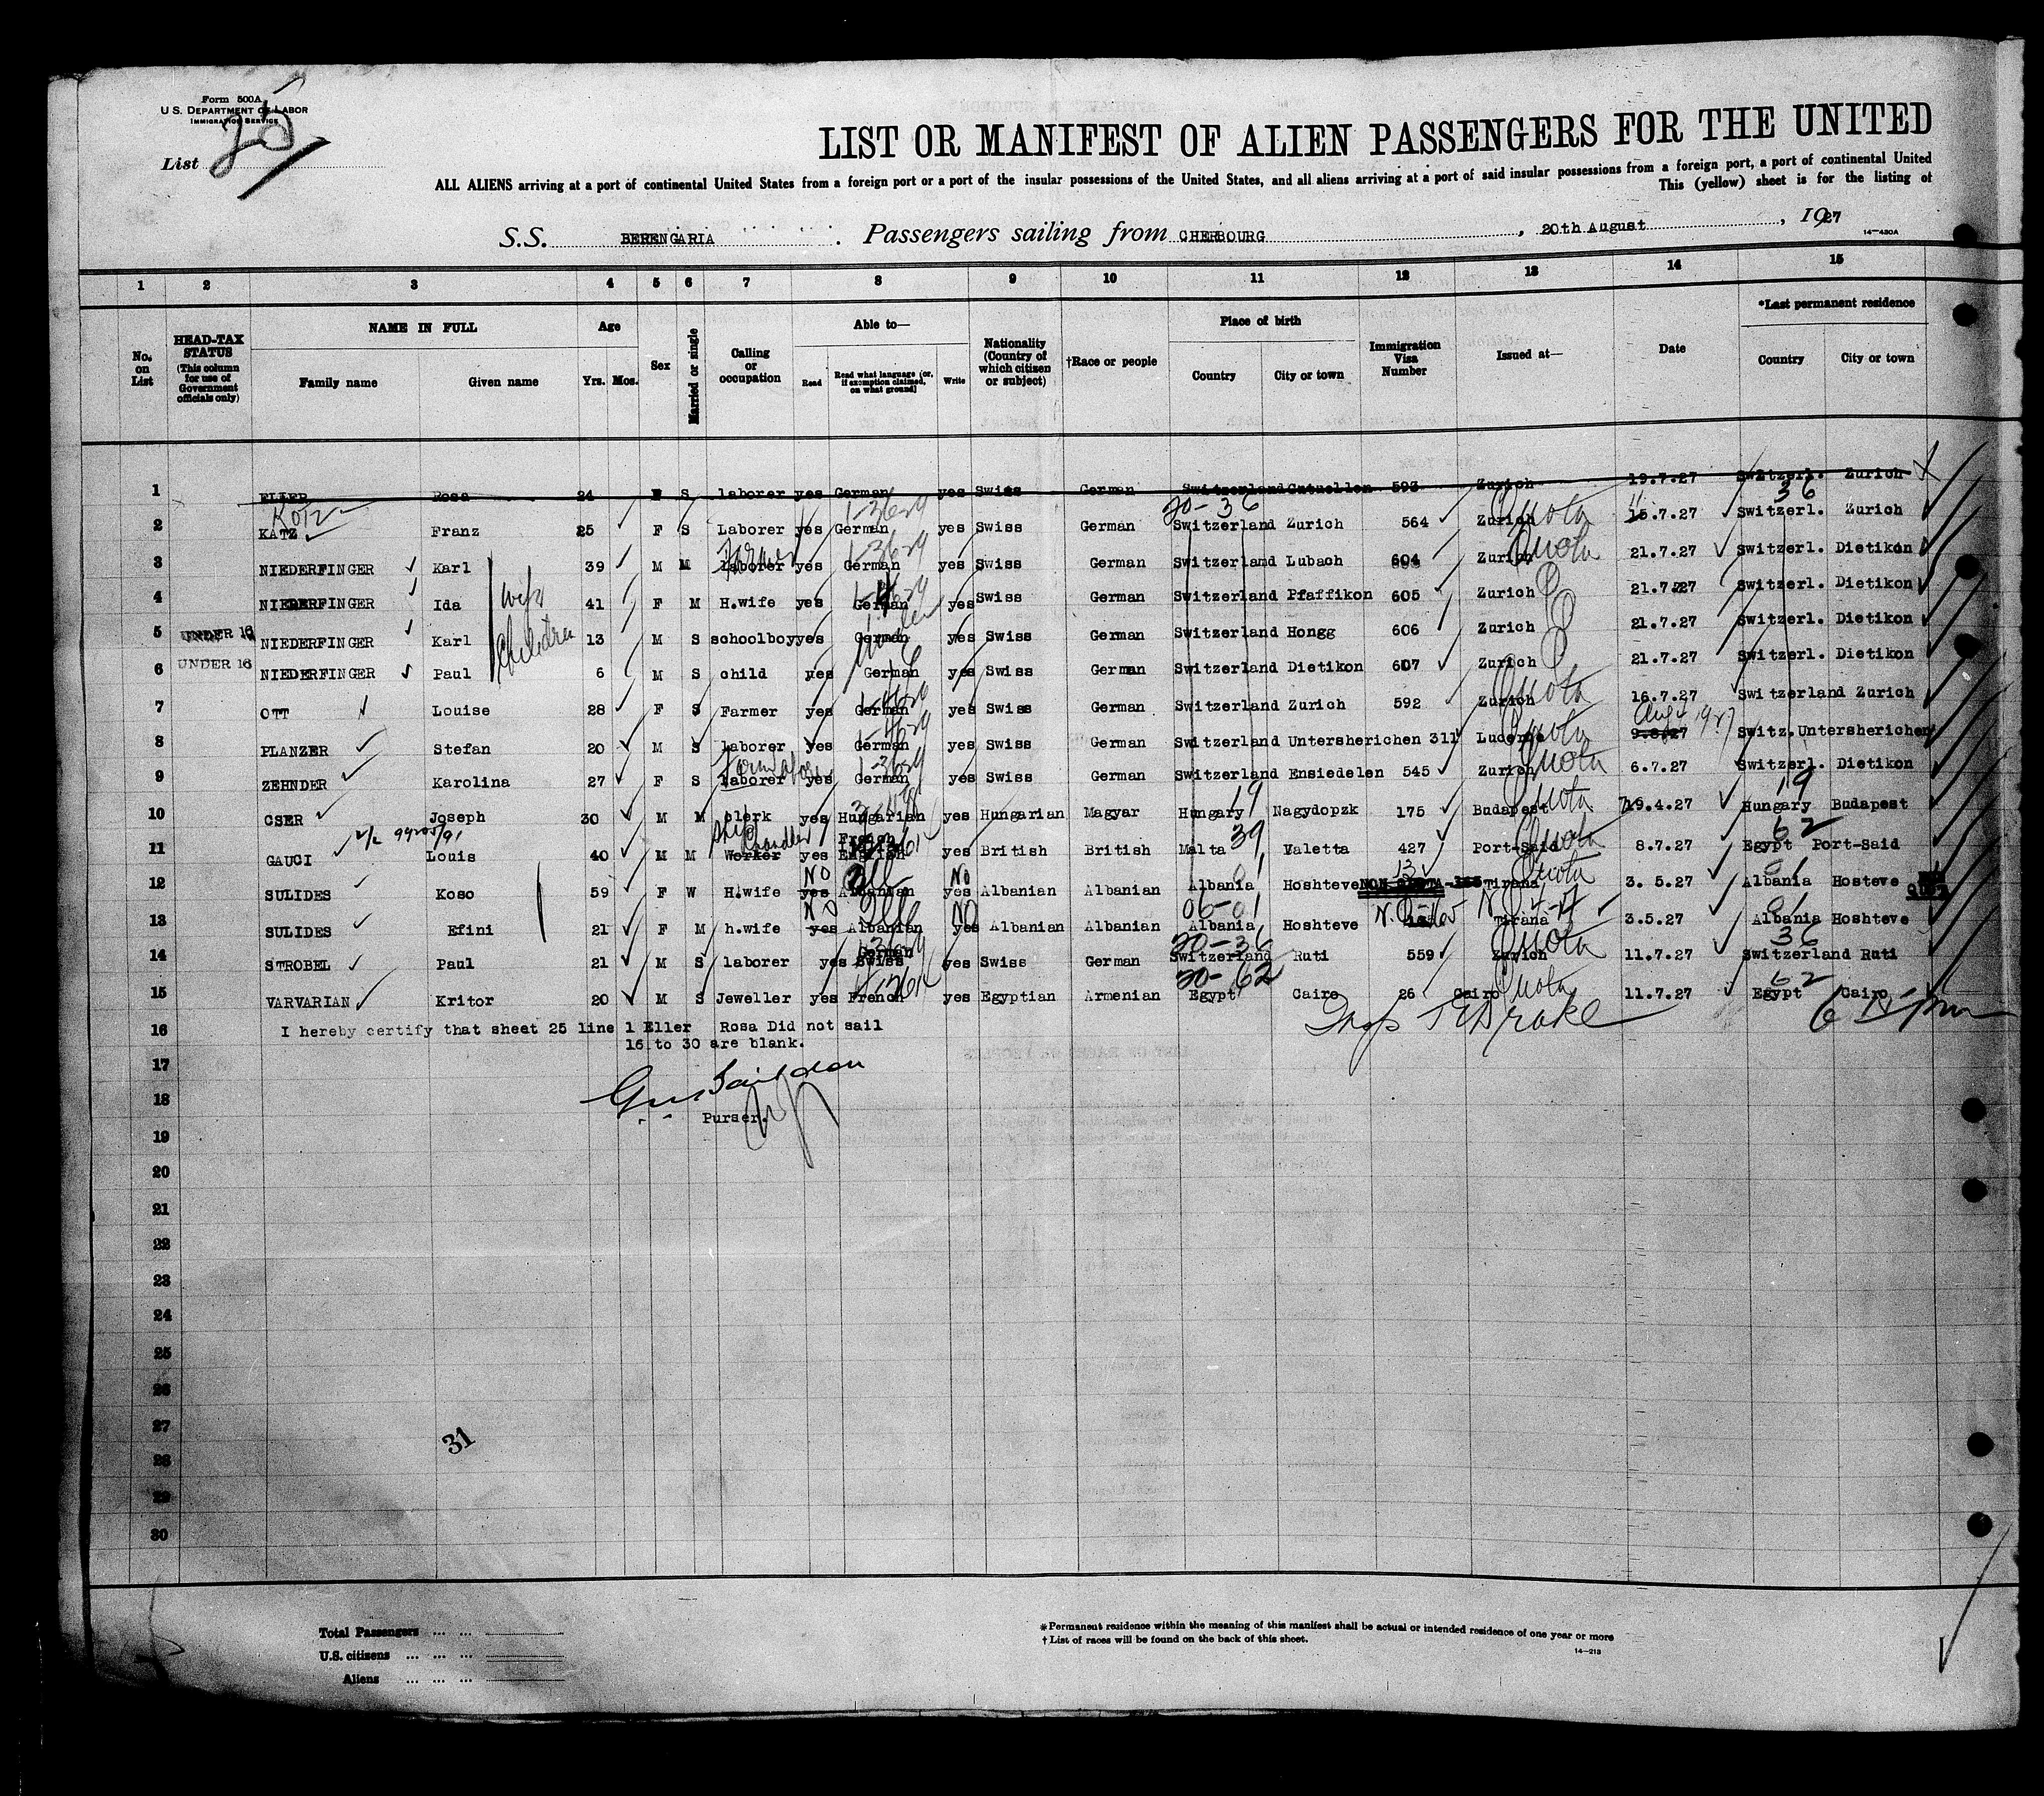 Form 500A
U.S. DEPARTMENT OF LABOR
IMMIGRATION SERVICE
List 25
LIST OR MANIFEST OF ALIEN PASSENGERS FOR THE UNITED
ALL ALIENS arriving at a port of continental United States from a foreign port or a port of the insular possessions of the United States, and all aliens arriving at a port of said insular possessions from a foreign port, a port of continental United
This (yellow) sheet is for the listing of
S.S. BERENGARIA. Passengers sailing from CHERBOURG, 20th August, 1927
14-430A
1 2 3 4 5 6 7 8 9 10 11 12 13 14 15
No. on List
HEAD-TAX STATUS (This column for use of Government officials only)
NAME IN FULL
Family name Given name
Age
Yrs. Mos.
Sex
Married or single
Calling or occupation
Able to—
Read Read what language (or, if exemption claimed, on what ground) Write
Nationality (Country of which citizen or subject)
†Race or people
Place of birth
Country City or town
Immigration Visa Number
Issued at—
Date
*Last permanent residence
Country City or town
1 ELLER Rosa 24 F S laborer yes German yes Swiss German Switzerland 593 Zurich 19.7.27 Switzerl. Zurich
Kotz 1-3629 20-36 Quota 36
2 KATZ Franz 25 F S Laborer yes German yes Swiss German Switzerland Zurich 564 Zurich 15.7.27 Switzerl. Zurich
Farmer 1-3629 Quota
3 NIEDERFINGER Karl 39 M M laborer yes German yes Swiss German Switzerland Lubach 604 Zurich 21.7.27 Switzerl. Dietikon
wife
4 NIEDERFINGER Ida 41 F M H.wife yes German yes Swiss German Switzerland Pfaffikon 605 Zurich 21.7.27 Switzerl. Dietikon
children
5 UNDER 16 NIEDERFINGER Karl 13 M S schoolboy yes German yes Swiss German Switzerland Hongg 606 Zurich 21.7.27 Switzerl. Dietikon
6 UNDER 16 NIEDERFINGER Paul 6 M S child yes German yes Swiss German Switzerland Dietikon 607 Zurich 21.7.27 Switzerl. Dietikon
Quota
7 OTT Louise 28 F S Farmer yes German yes Swiss German Switzerland Zurich 592 Zurich 16.7.27 Switzerland Zurich
Quota Aug 4 1927
8 PLANZER Stefan 20 M S laborer yes German yes Swiss German Switzerland Untersherichen 311 Lucerne 9.8.27 Switz. Untersherichen
Quota
9 ZEHNDER Karolina 27 F S laborer yes German yes Swiss German Switzerland Ensiedelen 545 Zurich 6.7.27 Switzerl. Dietikon
19 Quota 19
10 CSER Joseph 30 M M clerk yes Hungarian yes Hungarian Magyar Hungary Nagydopzk 175 Budapest 19.4.27 Hungary Budapest
Ship Chandler French 39 Quota 62
11 GAUCI Louis 40 M M Worker yes English yes British British Malta Valetta 427 Port-Said 8.7.27 Egypt Port-Said
NO NO 01 13 Quota 01
12 SULIDES Koso 59 F W H.wife yes Albanian yes Albanian Albanian Albania Hoshteve NON QUOTA Tirana 3.5.27 Albania Hosteve
NO NO 06-01 01
13 SULIDES Efini 21 F M h.wife yes Albanian yes Albanian Albanian Albania Hoshteve Tirana 3.5.27 Albania Hoshteve
German 20-36 Quota 36
14 STROBEL Paul 21 M S laborer yes Swiss yes Swiss German Switzerland Ruti 559 Zurich 11.7.27 Switzerland Ruti
20-62 Quota 62
15 VARVARIAN Kritor 20 M S Jeweller yes French yes Egyptian Armenian Egypt Cairo 26 Cairo 11.7.27 Egypt Cairo
16 I hereby certify that sheet 25 line 1 Eller Rosa Did not sail
16 to 30 are blank.
17
18
Purser.
19
20
21
22
23
24
25
26
27
31
28
29
30
Total Passengers
U.S. citizens
Aliens
*Permanent residence within the meaning of this manifest shall be actual or intended residence of one year or more
†List of races will be found on the back of this sheet.
14-213